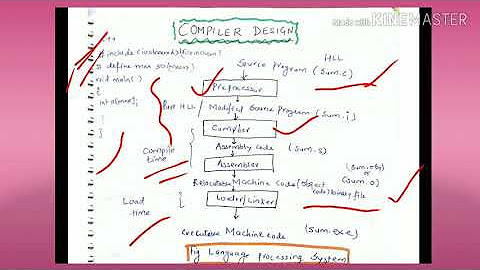 Made with KINEMASTER
COMPILER DESIGN
C++
# include <iostream.h>
# define max 50
void main( )
{
int a[max];
}
HLL
Source Program (Sum.c)
Preprocessor
Pure HLL / Modified Source Program (Sum.i)
Compiler
Compile time
Assembly code (Sum.s)
Assembler
(Sum.obj) or (Sum.o)
Relocatable Machine Code (Object code) binary file
Loader/Linker
Load time
executable Machine code (Sum.exe)
fig Language Processing System